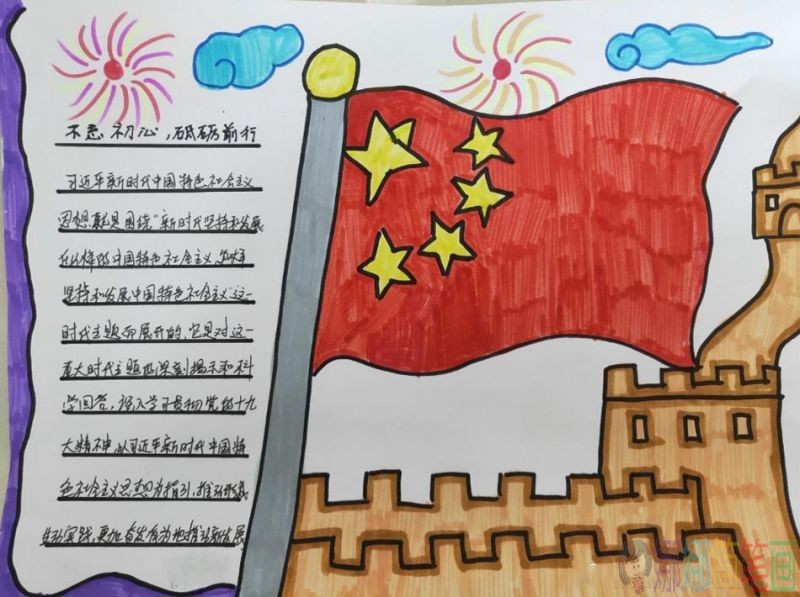 不忘初心，砥砺前行
习近平新时代中国特色社会主义
思想就是围绕“新时代坚持和发展
什么样的中国特色社会主义、怎样
坚持和发展中国特色社会主义”这一
时代主题而展开的，它是对这一
重大时代主题的深刻揭示和科
学回答，深入学习贯彻党的十九
大精神，以习近平新时代中国特
色社会主义思想为指引，推动形成
生动实践，更加奋发有为地推动新发展